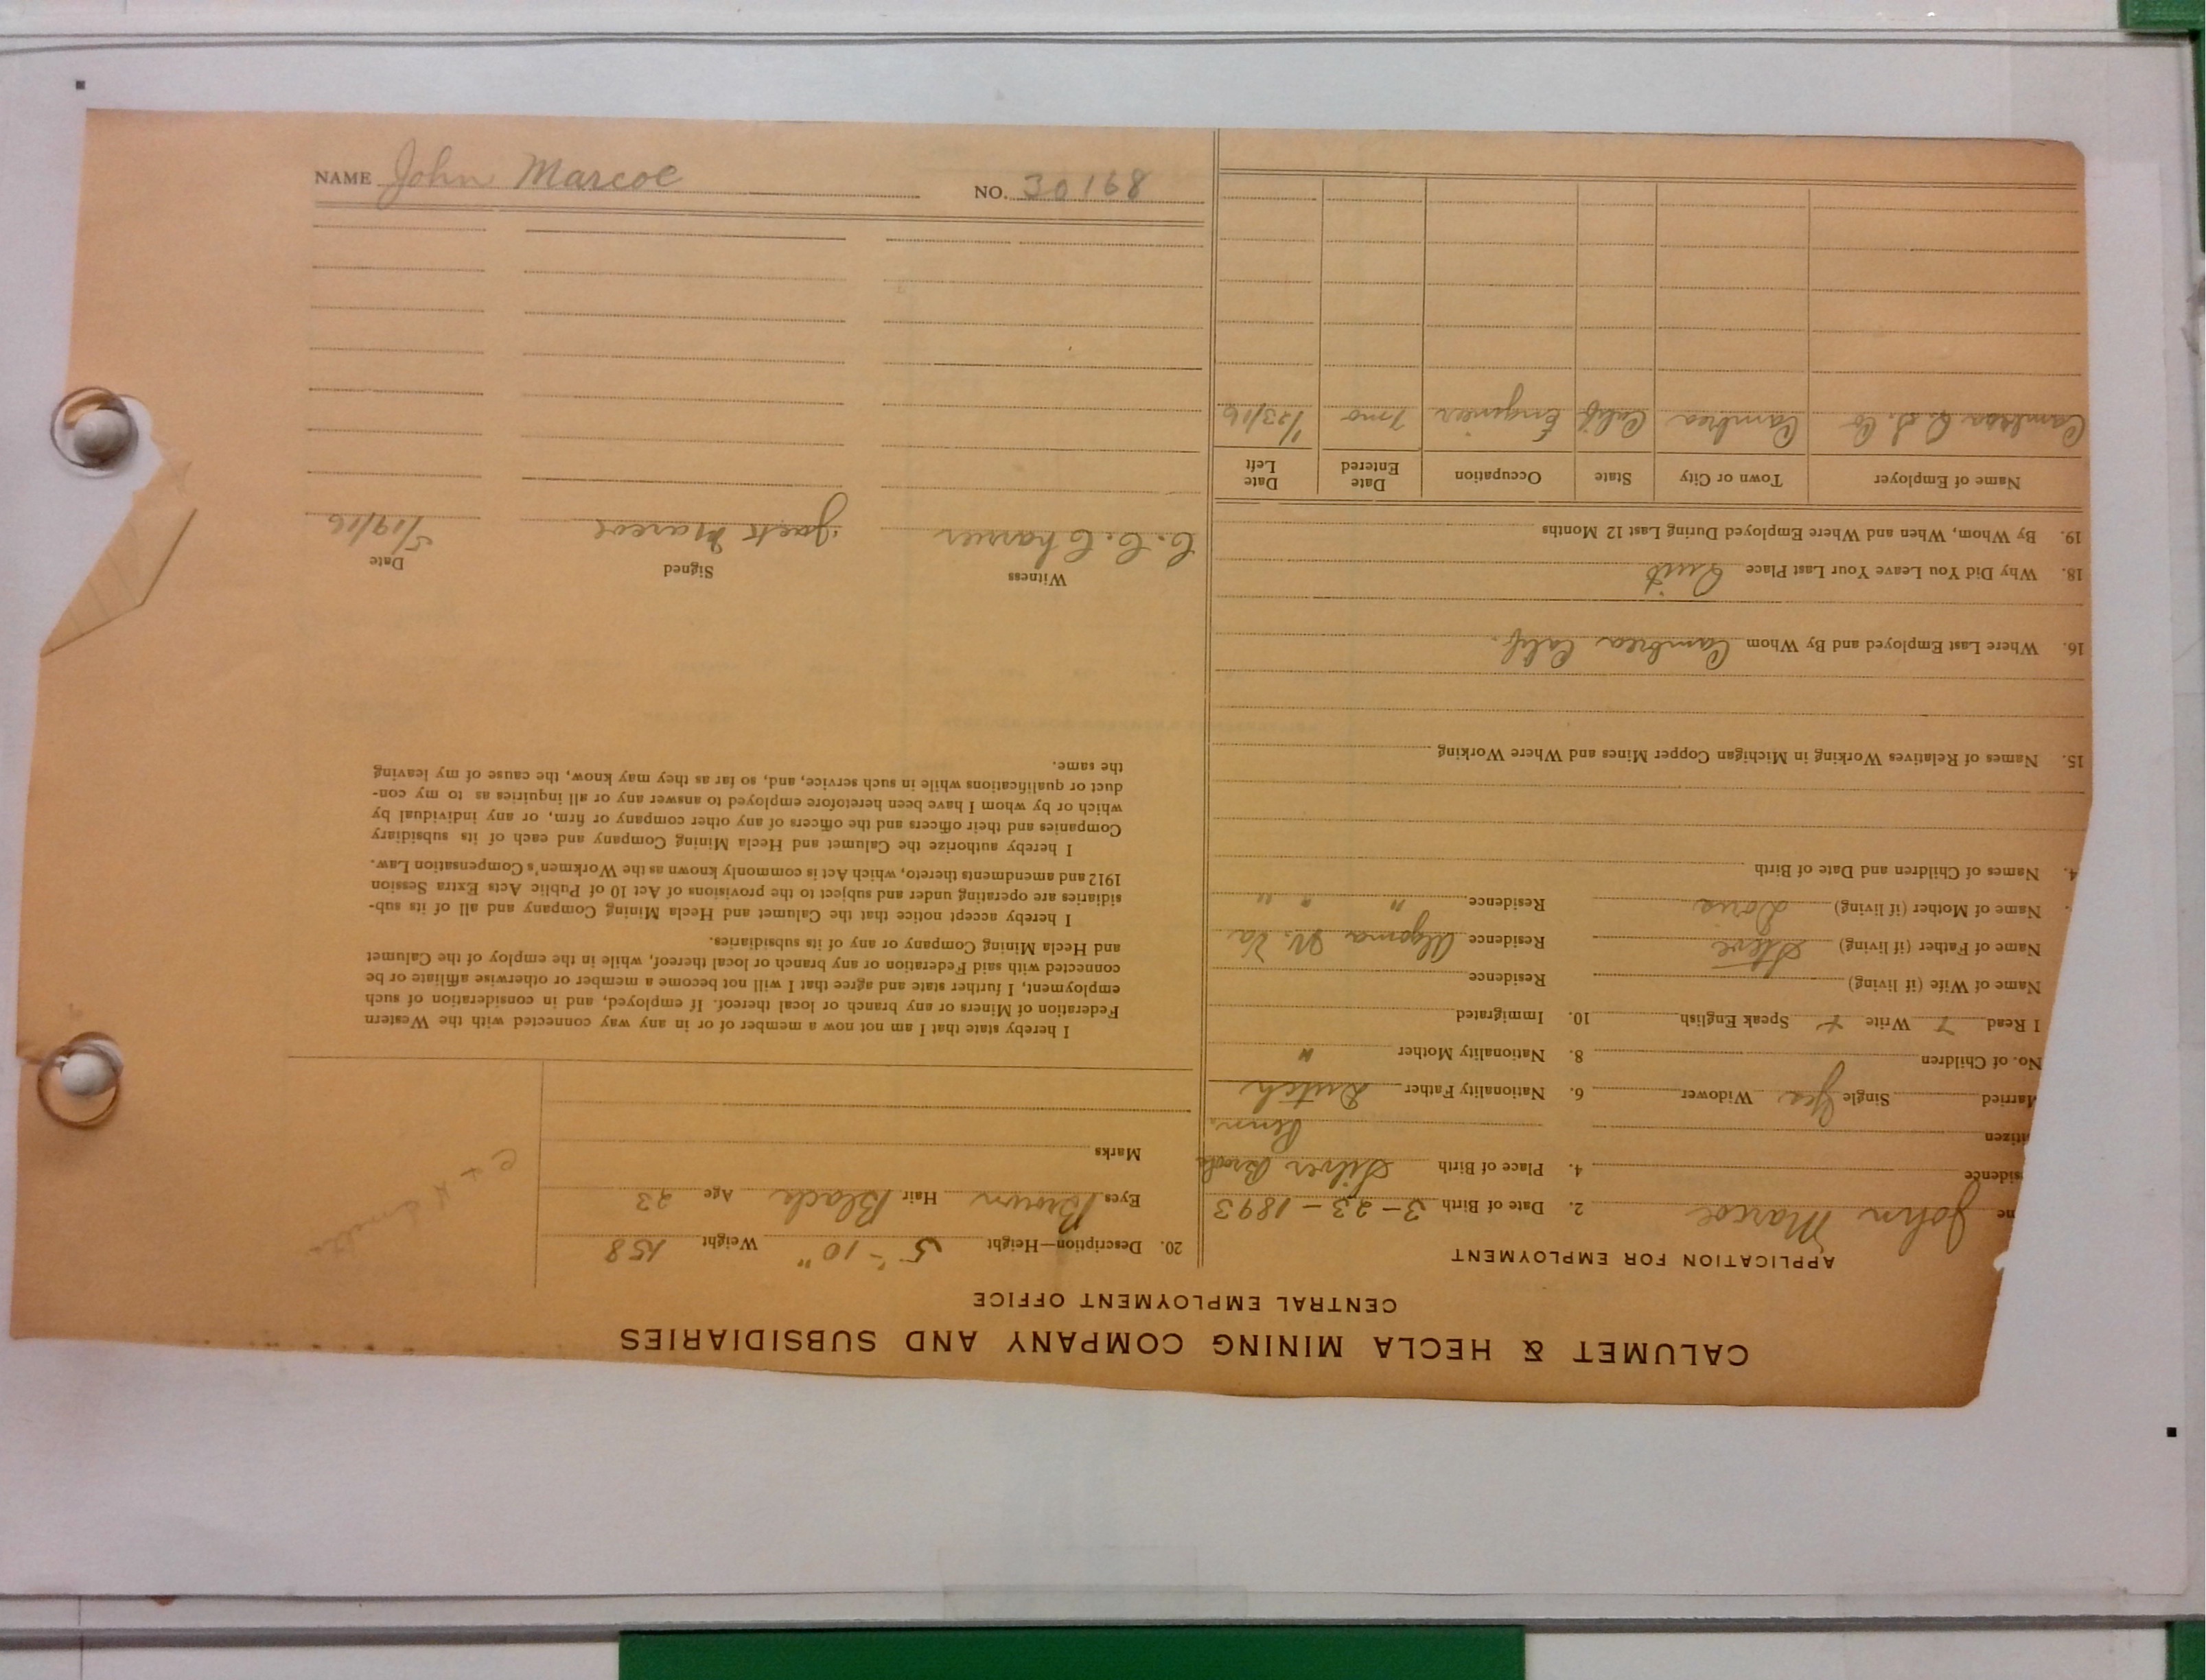 NAME John Marcoe NO. 30168
CALUMET & HECLA MINING COMPANY AND SUBSIDIARIES
CENTRAL EMPLOYMENT OFFICE
APPLICATION FOR EMPLOYMENT
me John Marcoe 2. Date of Birth 3-23-1893
sidence 4. Place of Birth Silver Brook
itizen Penn.
Married Single Yes Widower 6. Nationality Father Dutch
No. of Children 8. Nationality Mother "
I Read + Write + Speak English 10. Immigrated
Name of Wife (if living) Residence
Name of Father (if living) Steve Residence Algoma W. Va
Name of Mother (if living) Residence " " "
4. Names of Children and Date of Birth
15. Names of Relatives Working in Michigan Copper Mines and Where Working
16. Where Last Employed and By Whom Cambria Calif.
18. Why Did You Leave Your Last Place Quit
19. By Whom, When and Where Employed During Last 12 Months
Name of Employer Town or City State Occupation Date Entered Date Left
Co Cambria Calif Engineer 7 mo 1/23/16
20. Description—Height 5'-10" Weight 158
Eyes Brown Hair Black Age 23
Marks
I hereby state that I am not now a member of or in any way connected with the Western
Federation of Miners or any branch or local thereof. If employed, and in consideration of such
employment, I further state and agree that I will not become a member or otherwise affiliate or be
connected with said Federation or any branch or local thereof, while in the employ of the Calumet
and Hecla Mining Company or any of its subsidiaries.
I hereby accept notice that the Calumet and Hecla Mining Company and all of its sub-
sidiaries are operating under and subject to the provisions of Act 10 of Public Acts Extra Session
1912 and amendments thereto, which Act is commonly known as the Workmen's Compensation Law.
I hereby authorize the Calumet and Hecla Mining Company and each of its subsidiary
Companies and their officers and the officers of any other company or firm, or any individual by
which or by whom I have been heretofore employed to answer any or all inquiries as to my con-
duct or qualifications while in such service, and, so far as they may know, the cause of my leaving
the same.
Witness Signed Date
C. C. Jack Marcoe 5/19/16